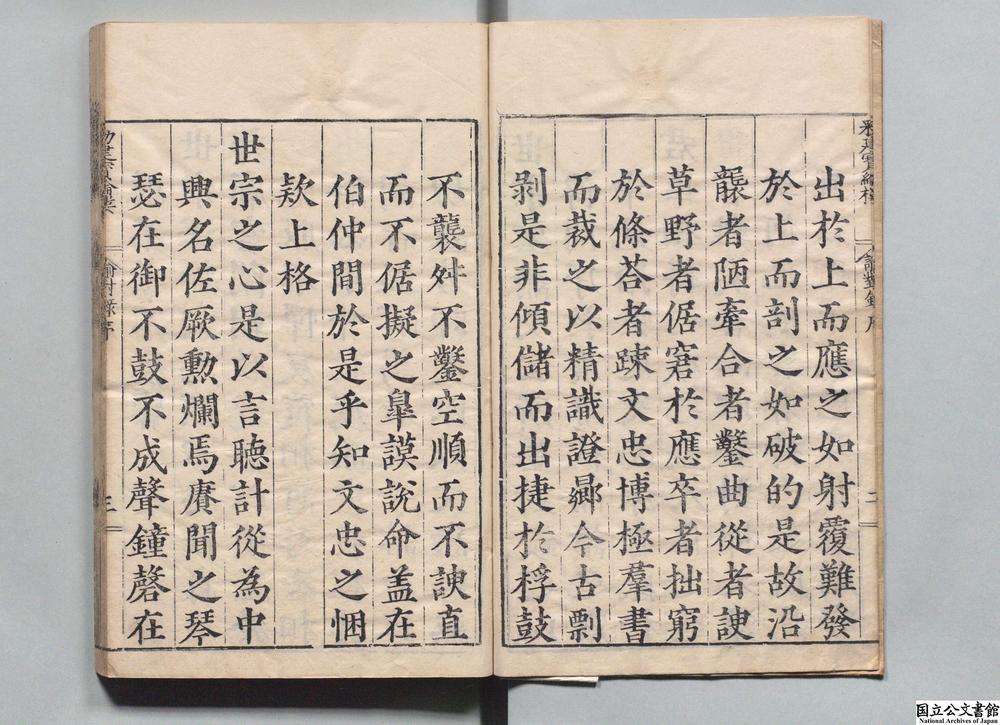 出於上而應之如射覆難發
於上而剖之如破的是故沿
襲者陋牽合者鑿曲從者諛
草野者倨窘於應卒者拙窮
於條荅者踈文忠博極羣書
而裁之以精識證曏今古剽
剥是非傾儲而出捷於桴鼓
不襲舛不鑿空順而不諛直
而不倨擬之臯謨說命盖在
伯仲間於是乎知文忠之悃
欵上格
世宗之心是以言聽計從為中
興名佐厥勲爛焉賡聞之琴
瑟在御不鼓不成聲鐘磬在
二
三
国立公文書館
National Archives of Japan